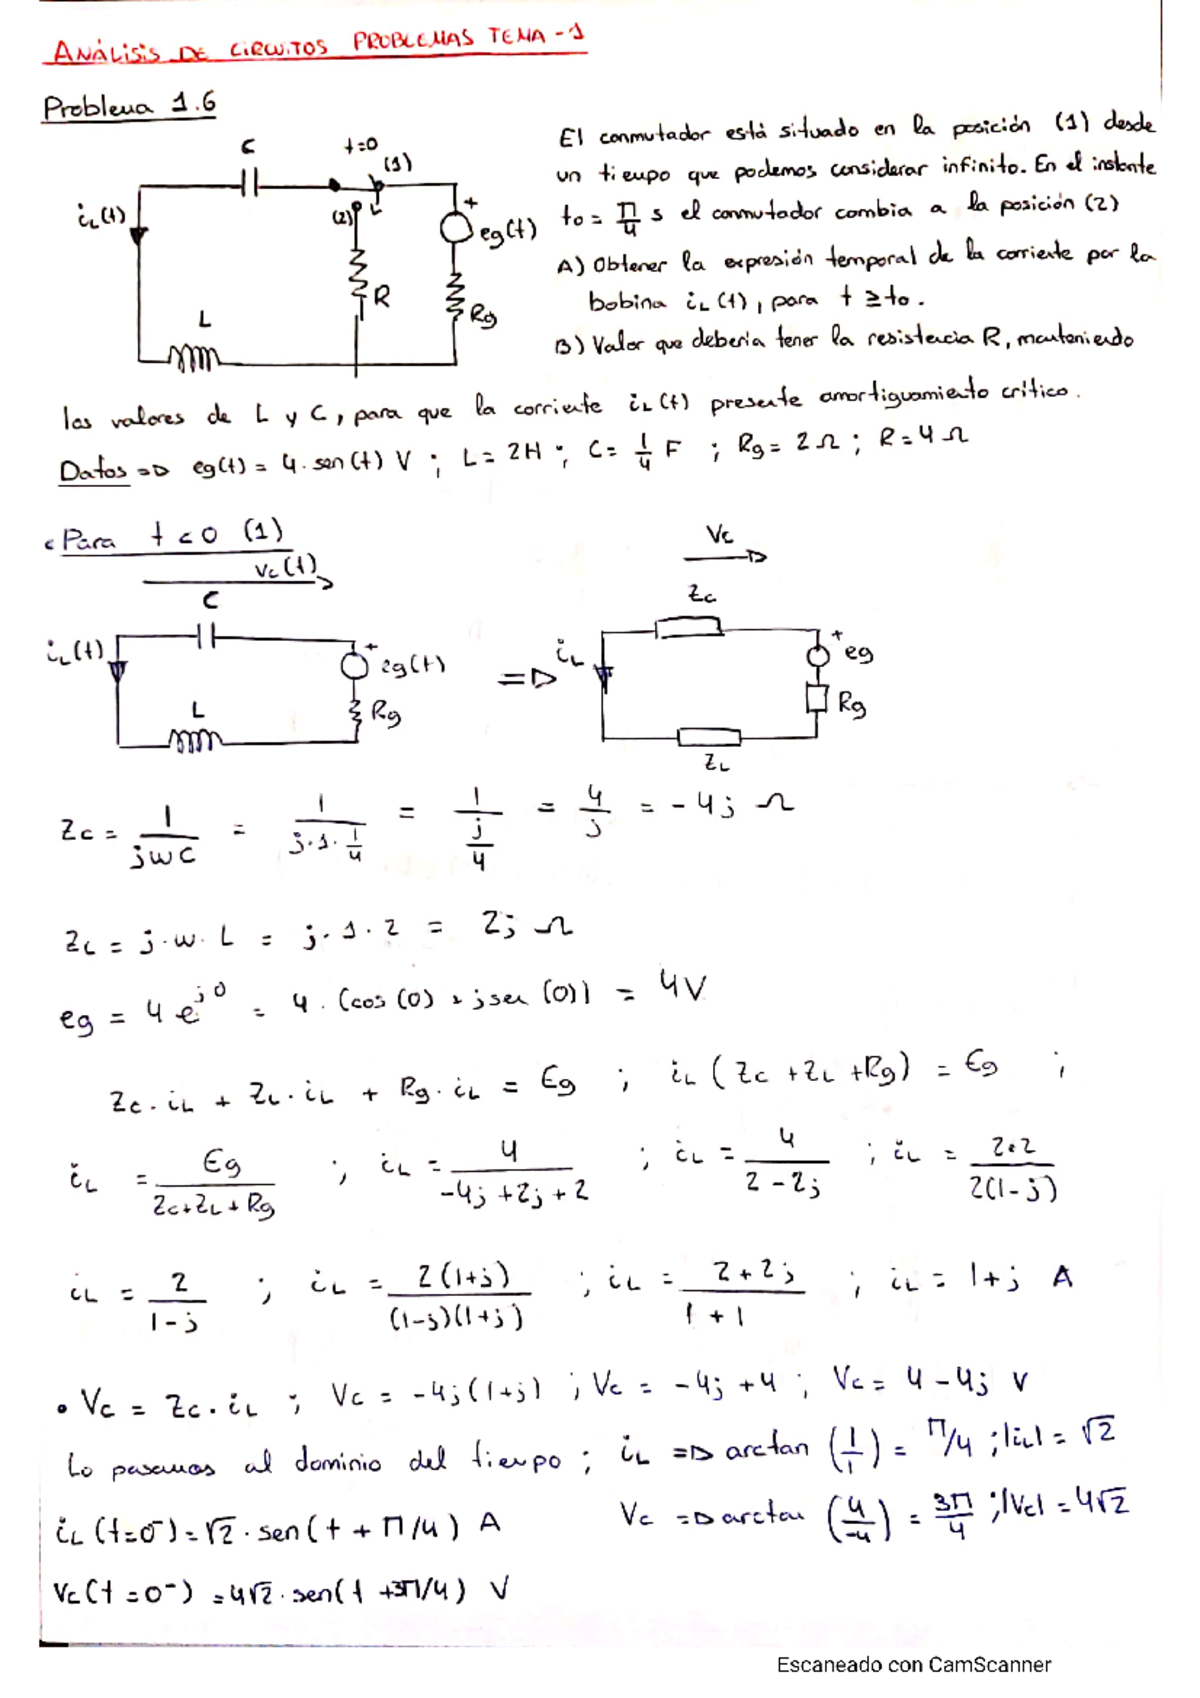 ANÁLISIS DE CIRCUITOS PROBLEMAS TEMA - 1
Problema 1.6
El conmutador está situado en la posición (1) desde
un tiempo que podemos considerar infinito. En el instante
t₀ = π/4 s el conmutador combia a la posición (2)
A) Obtener la expresión temporal de la corriente por la
bobina iL(t), para t ≥ t₀.
B) Valor que debería tener la resistencia R, manteniendo
los valores de L y C, para que la corriente iL(t) presente amortiguamiento crítico.
Datos => eg(t) = 4·sen(t) V ; L = 2H ; C = 1/4 F ; Rg = 2 Ω ; R = 4 Ω
C t=0 (1)
iL(t) (2) + eg(t)
R Rg
L
Para t < 0 (1)
Vc(t)
C
iL(t) + eg(t)
L Rg
=>
Vc
Zc
iL + eg
Rg
ZL
Zc = 1/jwC = 1/(j·1·1/4) = 1/(j/4) = 4/j = -4j Ω
ZL = j·w·L = j·1·2 = 2j Ω
eg = 4e^j0 = 4·(cos(0) + jsen(0)) = 4V
Zc·iL + ZL·iL + Rg·iL = Eg ; iL(Zc + ZL + Rg) = Eg ;
iL = Eg/(Zc+ZL+Rg) ; iL = 4/(-4j+2j+2) ; iL = 4/(2-2j) ; iL = 2·2/2(1-j)
iL = 2/(1-j) ; iL = 2(1+j)/(1-j)(1+j) ; iL = (2+2j)/(1+1) ; iL = 1+j A
• Vc = Zc·iL ; Vc = -4j(1+j) ; Vc = -4j+4 ; Vc = 4-4j V
Lo pasamos al dominio del tiempo ; iL => arctan (1/1) = π/4 ; |iL| = √2
Vc => arctan (4/-4) = 3π/4 ; |Vc| = 4√2
iL(t=0⁻) = √2·sen(t + π/4) A
Vc(t=0⁻) = 4√2·sen(t + 3π/4) V
Escaneado con CamScanner